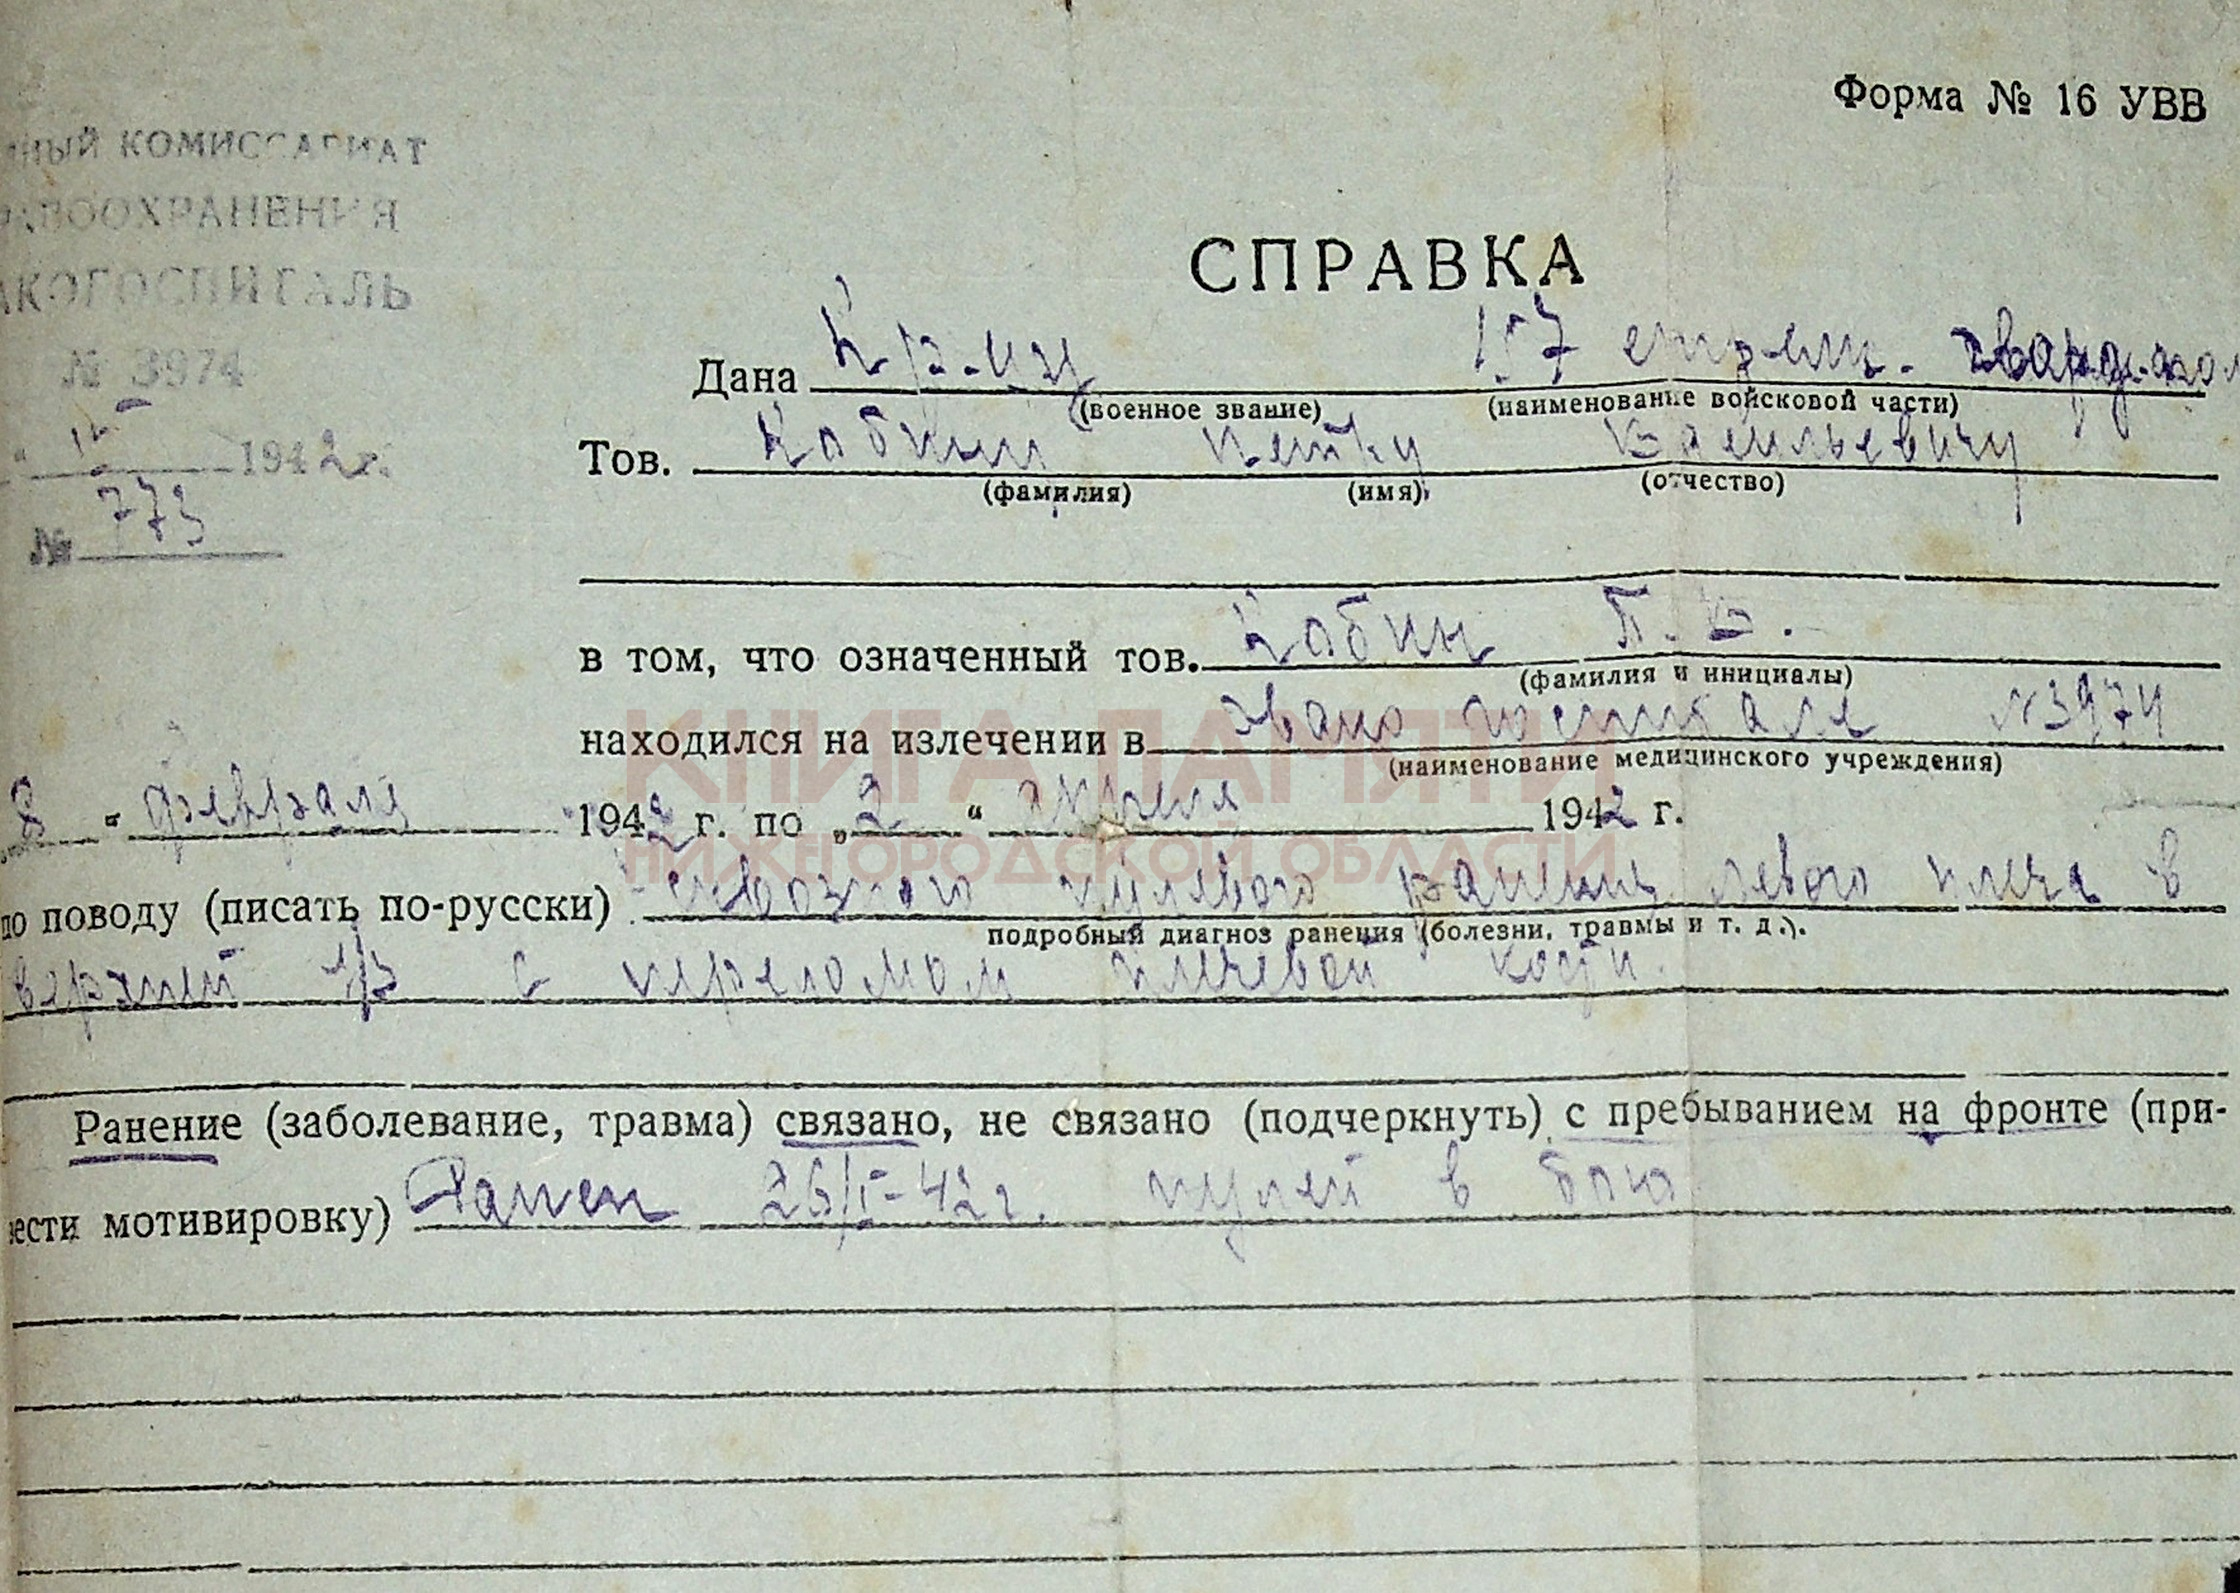 Форма № 16 УВВ
НЫЙ КОМИССАРИАТ
РАВООХРАНЕНИЯ
АКОГОСПИТАЛЬ
№ 3974
1942 г.
№ 773
СПРАВКА
Дана Кр-цу 157 стрелк. гвард. пол
(военное звание) (наименование войсковой части)
Тов. Кабину Петру Васильевичу
(фамилия) (имя) (отчество)
в том, что означенный тов. Кабин П. В.
(фамилия и инициалы)
находился на излечении в эвако госпитале № 3974
(наименование медицинского учреждения)
8 " февраля 1942 г. по „2 “ апреля 1942 г.
по поводу (писать по-русски) сквозного пулевого ранения левого плеча в
подробный диагноз ранения (болезни, травмы и т. д.).
верхней 1/3 с переломом плечевой кости.
Ранение (заболевание, травма) связано, не связано (подчеркнуть) с пребыванием на фронте (при-
вести мотивировку) Ранен 26/I-42 г. пулей в бою
КНИГА ПАМЯТИ
НИЖЕГОРОДСКОЙ ОБЛАСТИ